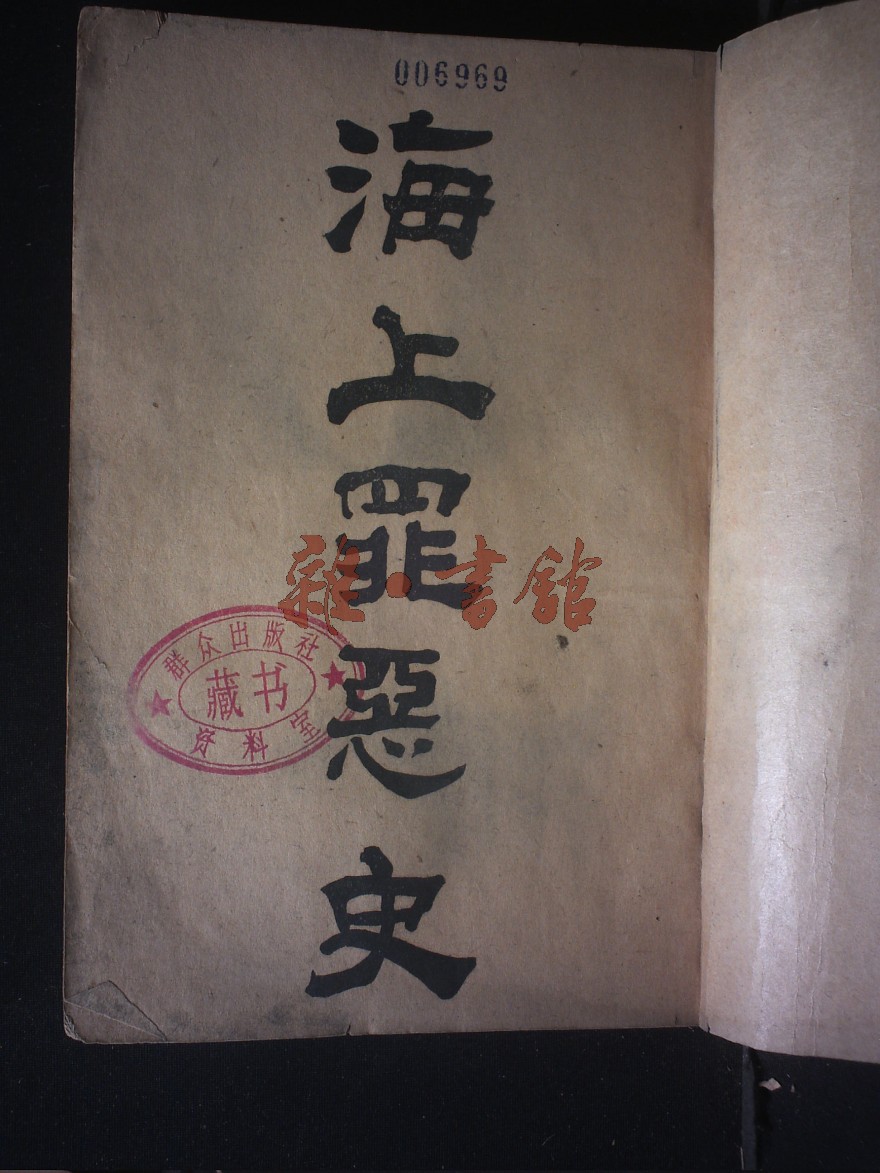 006969
海上罪惡史
雜·書館
群众出版社
藏书
资料室